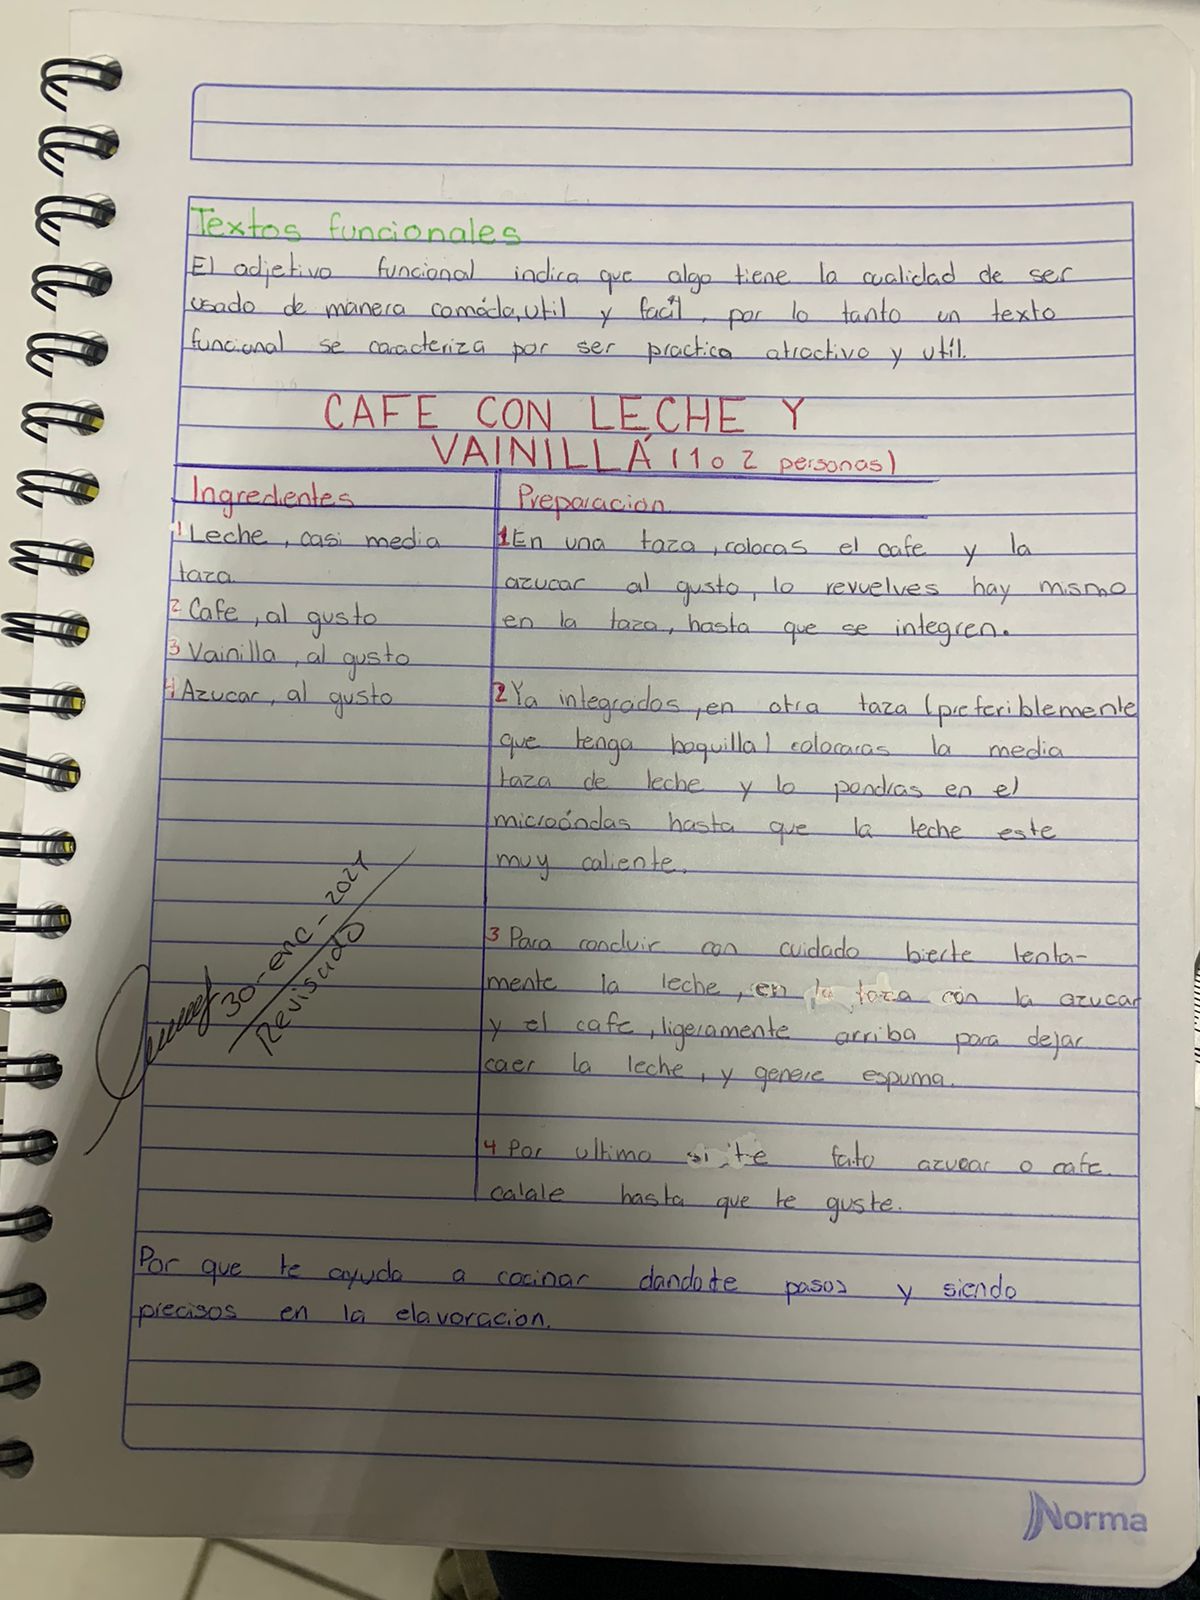 Textos funcionales
El adjetivo funcional indica que algo tiene la cualidad de ser
usado de manera comóda, util y facíl, por lo tanto un texto
funcional se caracteriza por ser practico atractivo y utíl.
CAFE CON LECHE Y
VAINILLA (1 o 2 personas)
Ingredientes
1 Leche, casi media
taza
2 Cafe, al gusto
3 Vainilla, al gusto
4 Azucar, al gusto
Preparacion
1 En una taza, colocas el cafe y la
azucar al gusto, lo revuelves hay mismo
en la taza, hasta que se integren.
2 Ya integrados, en otra taza (preferiblemente
que tenga boquilla) colocaras la media
taza de leche y lo pondras en el
microóndas hasta que la leche este
muy caliente.
3 Para concluir con cuidado bierte lenta-
mente la leche, en la taza con la azucar
y el cafe, ligeramente arriba para dejar
caer la leche, y genere espuma.
4 Por ultimo si te falto azucar o cafe.
calale hasta que te guste.
30-enc-2021
Revisado
Por que te ayuda a cocinar dandote pasos y siendo
precisos en la elavoracion.
Norma